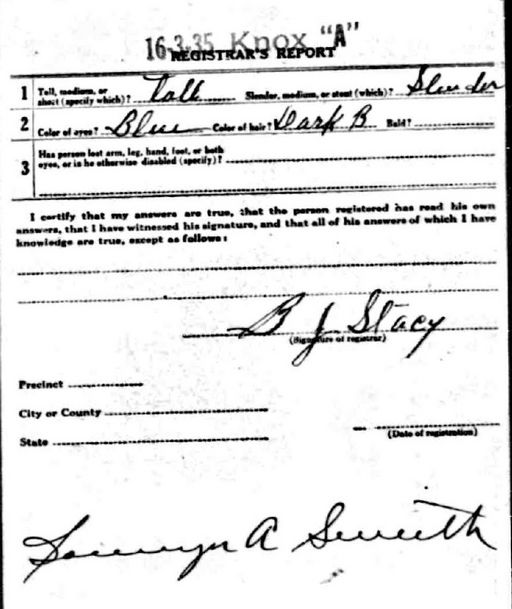 16-3-35 Knox "A"
REGISTRAR'S REPORT
1 Tall, medium, or short (specify which)? Tall Slender, medium, or stout (which)? Slender
2 Color of eyes? Blue Color of hair? Dark B Bald?
3 Has person lost arm, leg, hand, foot, or both
eyes, or is he otherwise disabled (specify)?
I certify that my answers are true, that the person registered has read his own
answers, that I have witnessed his signature, and that all of his answers of which I have
knowledge are true, except as follows:
B J Stacy
(Signature of registrar)
Precinct
City or County
State
(Date of registration)
A